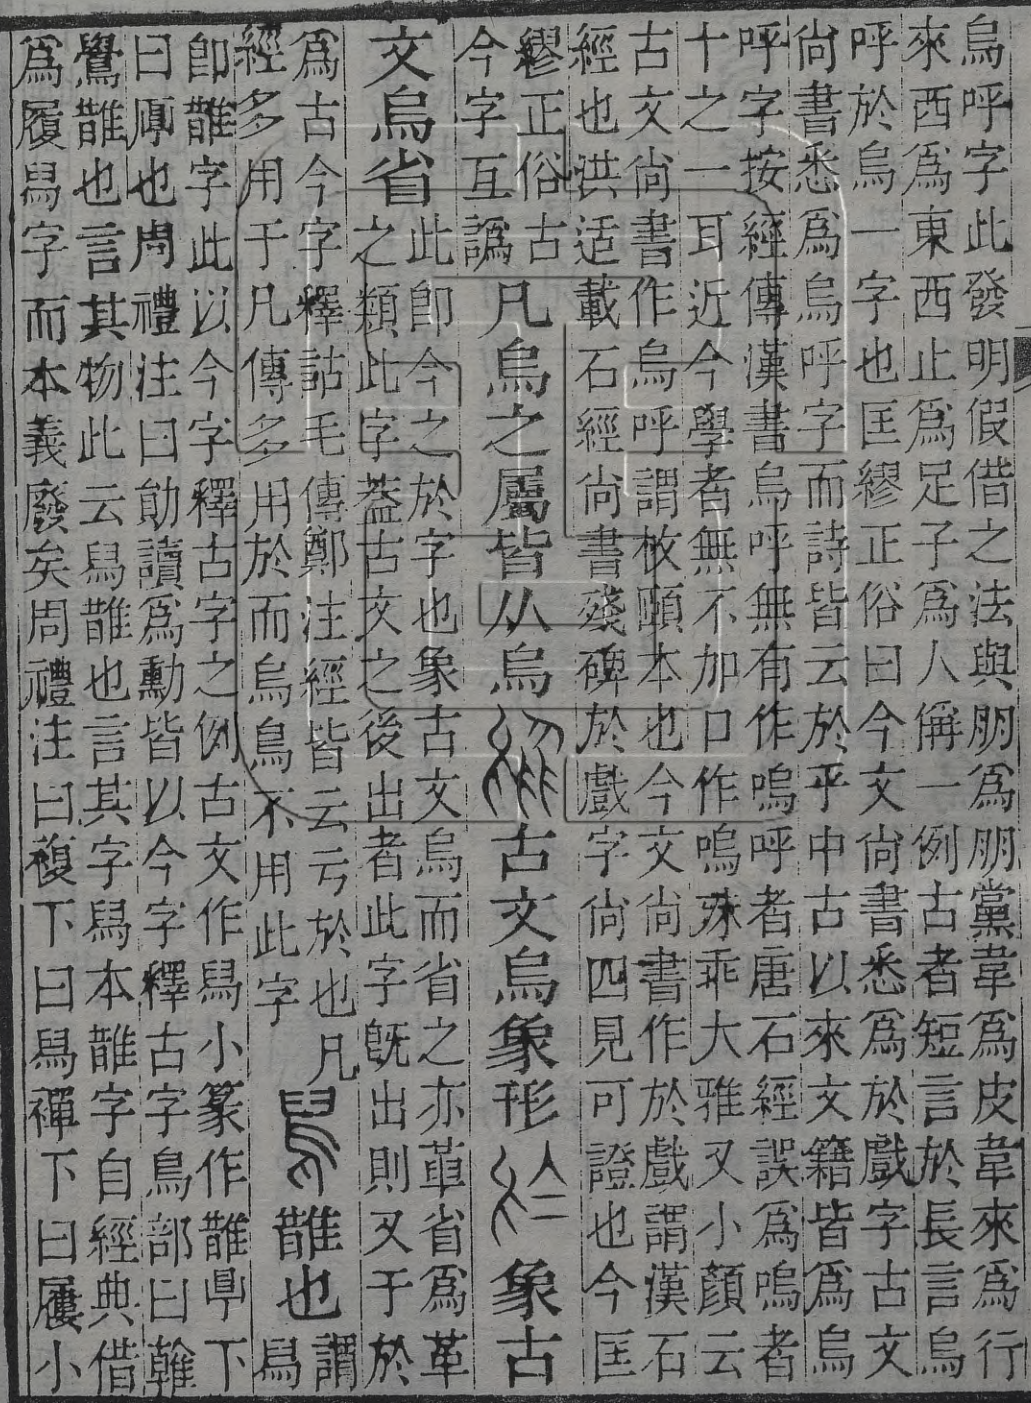 烏呼字此發明假借之法與朋爲朋黨韋爲皮韋來爲行
來西爲東西止爲足子爲人偁一例古者短言於長言烏
呼於烏一字也匡繆正俗曰今文尙書悉爲於戲字古文
尙書悉爲烏呼字而詩皆云於乎中古以來文籍皆爲烏
呼字按經傳漢書烏呼無有作嗚呼者唐石經誤爲嗚者
十之一耳近今學者無不加口作嗚殊乖大雅又小顏云
古文尙書作烏呼謂枚頤本也今文尙書作於戲謂漢石
經也洪适載石經尙書殘碑於戲字尙四見可證也今匡
繆正俗古
今字互譌
凡烏之屬皆从烏 古文烏象形 象古
文烏省
此卽今之於字也象古文烏而省之亦𠦶省爲革
之類此字葢古文之後出者此字旣出則又于於
爲古今字釋詁毛傳鄭注經皆云亏於也凡
經多用于凡傳多用於而烏鳥不用此字
舄䧿也
謂
舄
卽䧿字此以今字釋古字之例古文作舄小篆作䧿㫗下
曰厚也周禮注曰勛讀爲勳皆以今字釋古字鳥部曰雗
鷽䧿也言其物此云舄䧿也言其字舄本䧿字自經典借
爲履舄字而本義廢矣周禮注曰複下曰舄襌下曰屨小